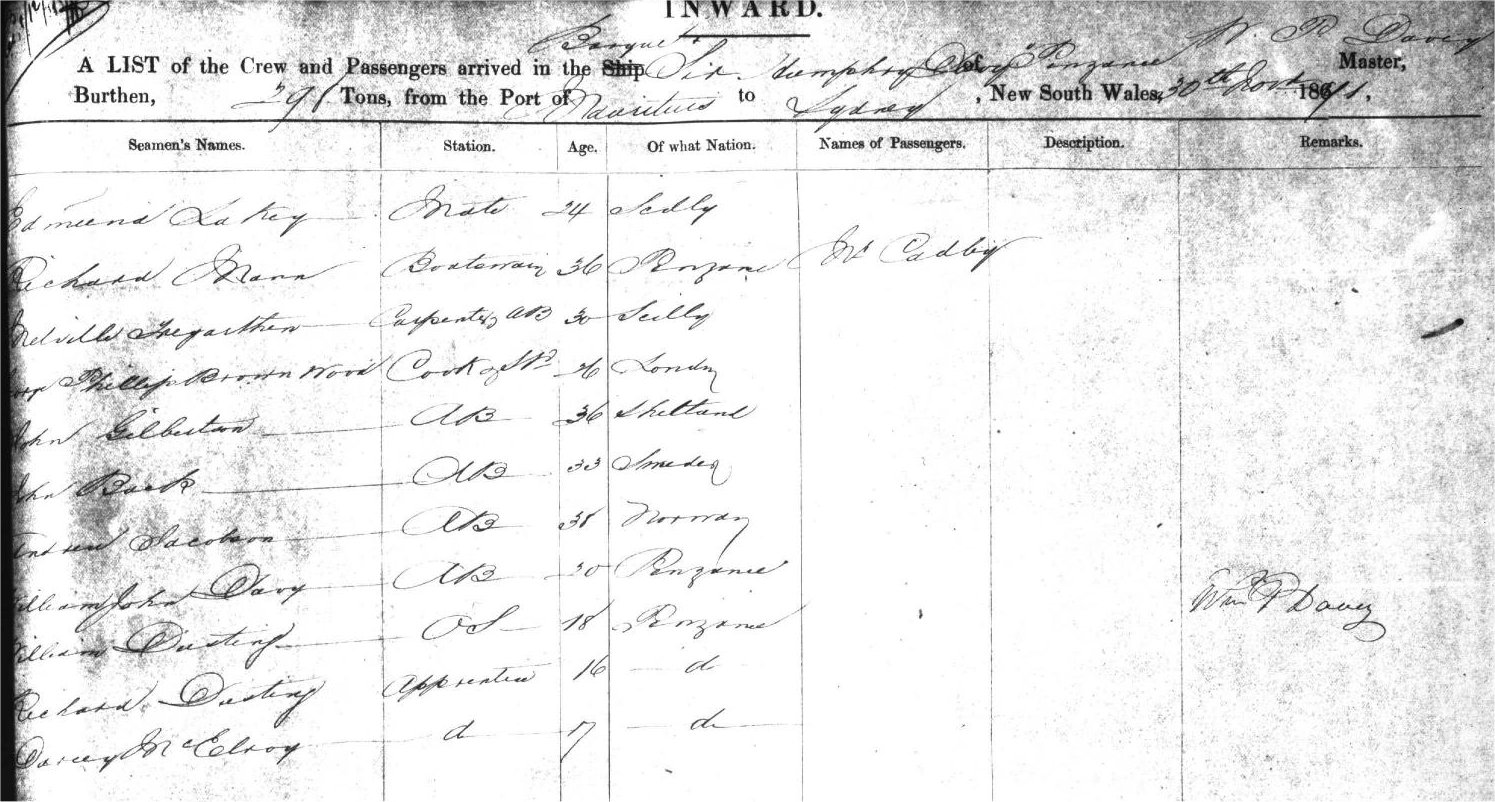 INWARD.
Barque
A LIST of the Crew and Passengers arrived in the Ship Sir Humphry Davy of Penzance W. P. Davey Master,
Burthen, 291 Tons, from the Port of Mauritius to Sydney, New South Wales, 30th Novr 1871.
Seamen's Names. Station. Age. Of what Nation. Names of Passengers. Description. Remarks.
Edmund Lakey Mate 24 Scilly
Richard Mann Boatswain 36 Penzance Mr Cadby
Melville Tregarthen Carpenter AB 30 Scilly
Phillip Brown Wood Cook & Std 26 London
John Gilbertson AB 36 Shetland
John Back AB 33 Sweden
Andrew Jacobson AB 38 Norway
William John Davy AB 20 Penzance
William Dusting OS 18 Penzance
Wm P Davey
Richard Dusting Apprentice 16 d
Darcey McElroy d 17 d